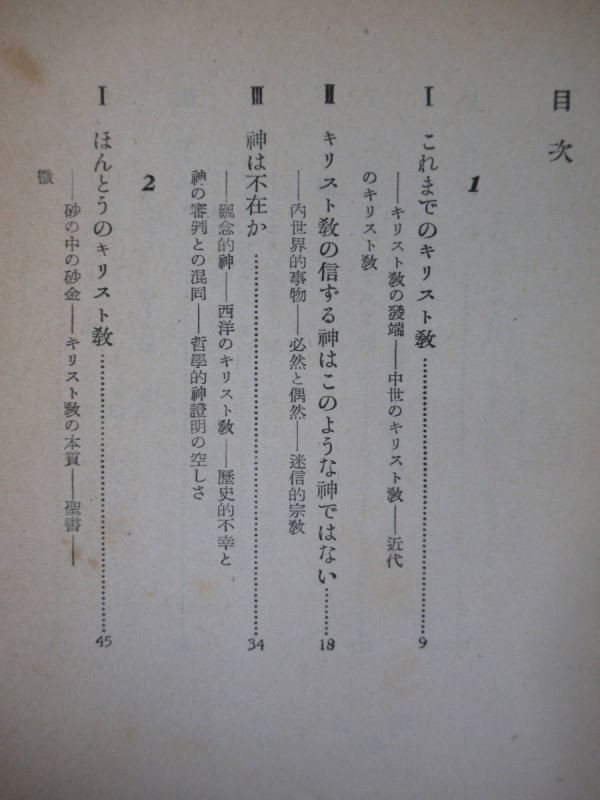 目次
1
I これまでのキリスト教…………9
——キリスト教の發端——中世のキリスト教——近代
のキリスト教
II キリスト教の信ずる神はこのような神ではない…………18
——內世界的事物——必然と偶然——迷信的宗教
III 神は不在か…………34
——觀念的神——西洋のキリスト教——歷史的不幸と
神の審判との混同——哲學的神證明の空しさ
2
I ほんとうのキリスト教…………45
——砂の中の砂金——キリスト教の本質——聖書——
徵